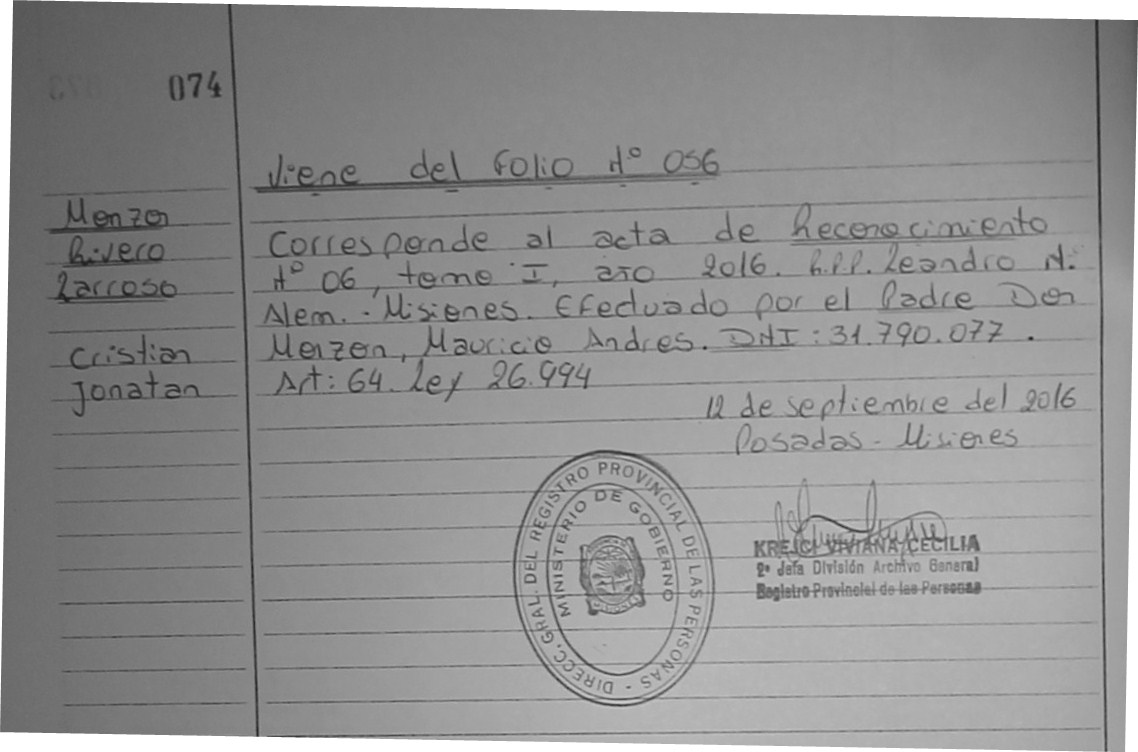 074
Viene del Folio Nº 056
Monzon
Rivero
Larroso
Cristian
Jonatan
Corresponde al acta de Reconocimiento
Nº 06, tomo I, año 2016. R.P.P. Leandro N.
Alem. - Misiones. Efectuado por el Padre Don
Monzon, Mauricio Andres. DNI: 31.790.077.
Art: 64. Ley 26.994
12 de septiembre del 2016
Posadas - Misiones
DIRECC. GRAL. DEL REGISTRO PROVINCIAL DE LAS PERSONAS -
MINISTERIO DE GOBIERNO
KREJCI VIVIANA CECILIA
2º Jefa División Archivo General
Registro Provincial de las Personas